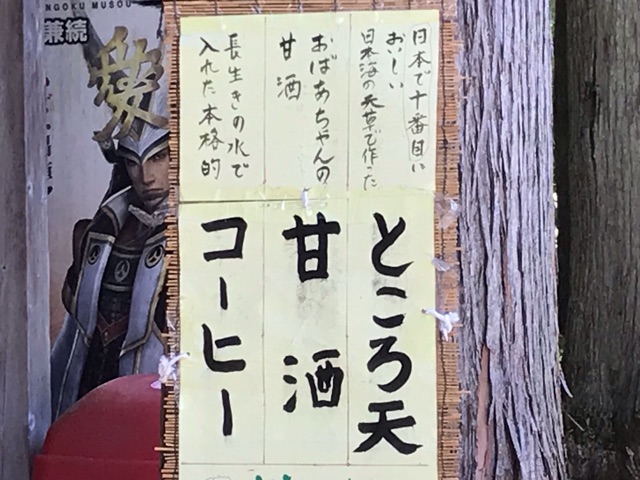 日本で十番目に
おいしい
日本海の天草で作った
ところ天
おばあちゃんの
甘酒
甘酒
長生きの水で
入れた本格的
コーヒー
NGOKU MUSOU
兼続
愛